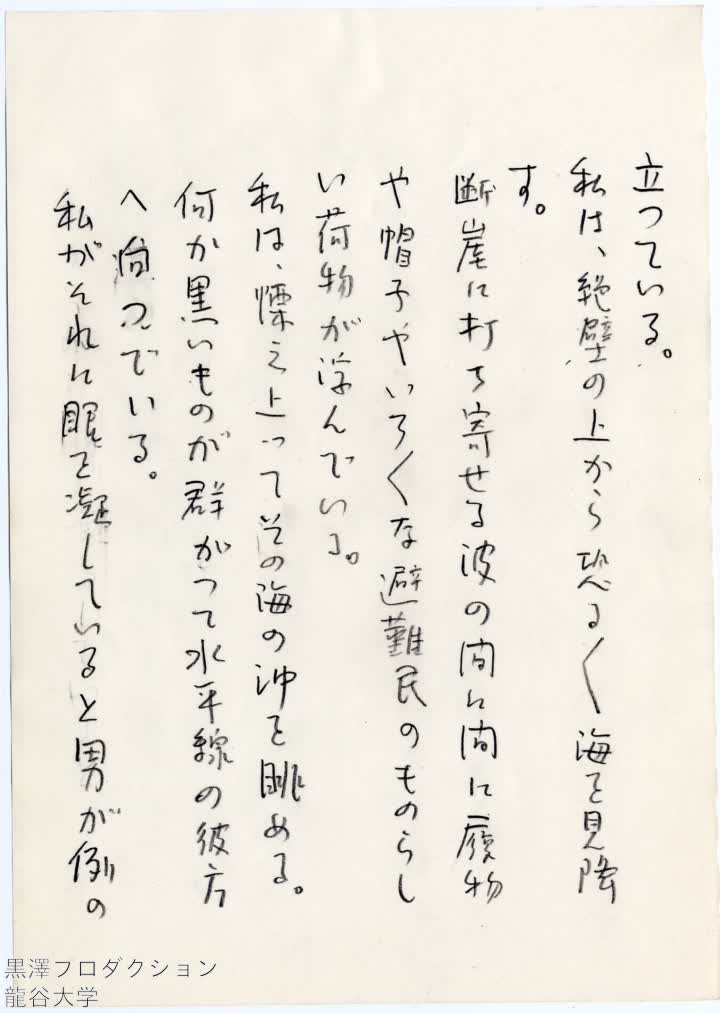 立つている。
私は、絶壁の上から恐る〱海を見降
す。
断崖に打ち寄せる波の間に間に履物
や帽子やいろ〱な避難民のものらし
い荷物が浮んでいる。
私は、慄え上ってその海の沖を眺める。
何か黒いものが群がつて水平線の彼方
へ泡つている。
私がそれに眼を凝していると男が例の
黒澤プロダクション
龍谷大学